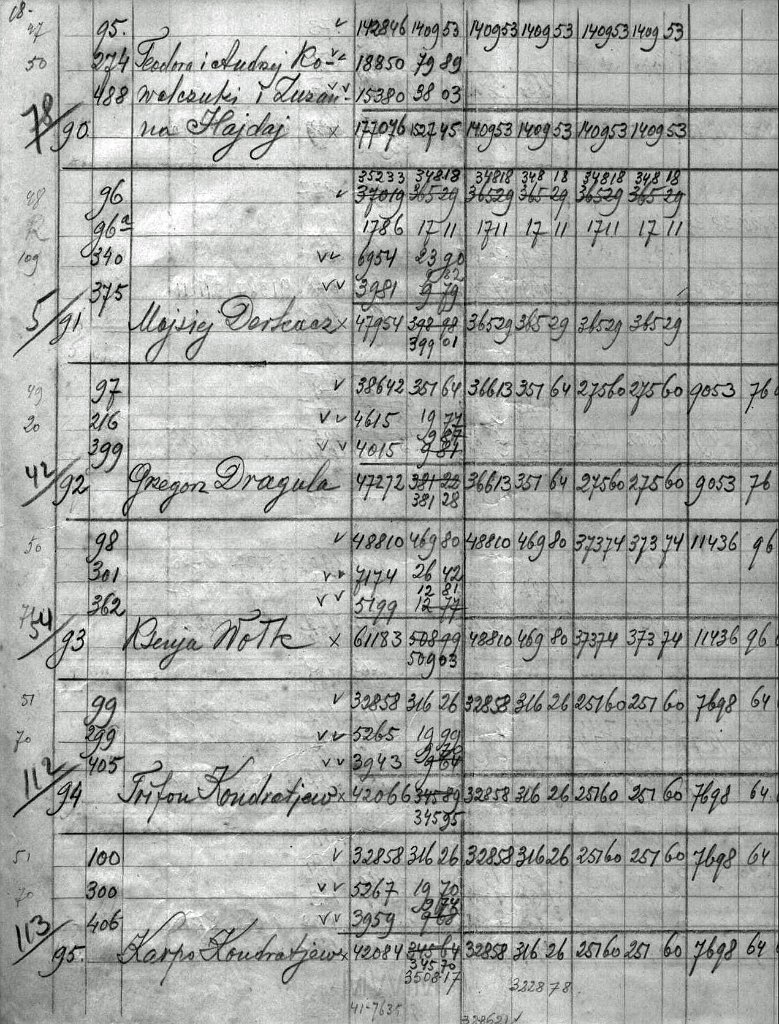 18-
47 95. v 142846 1409 53 140953 1409 53 140953 1409 53
50 274 Teodora i Andrzej Ko- v v 18850 79 89
488 walczuki i Zuzan- v v 15380 38 03
78/90 na Hajdaj x 177076 1527 45 140953 1409 53 140953 1409 53
35233 348 18 34818 348 18 34818 348 18
48 96 v 37019 365 29 36529 365 29 36529 365 29
96a 1786 17 11 1711 17 11 1711 17 11
109 340 v v 6954 23 90
9 82
375 v v 3981 9 79
5/91 Mojsiej Derkacz x 47954 398 98 36529 365 29 36529 365 29
399 01
49 97 v 38642 351 64 36613 351 64 27560 275 60 9053 76
20 216 v v 4615 19 77
9 87
399 v v 4015 9 81
42/92 Grzegorz Dragula 47272 381 22 36613 351 64 27560 275 60 9053 76
381 28
50 98 v 48810 469 80 48810 469 80 37374 373 74 11436 96
301 v v 7174 26 42
12 81
362 v v 5199 12 77
54/93 Ksenja Wołk x 61183 508 99 48810 469 80 37374 373 74 11436 96
509 03
51 99 v 32858 316 26 32858 316 26 25160 251 60 7698 64
70 299 v v 5265 19 99
9 70
405 v v 3943 9 64
112/94 Trifon Kondratjew x 42066 345 89 32858 316 26 25160 251 60 7698 64
345 95
51 100 v 32858 316 26 32858 316 26 25160 251 60 7698 64
70 300 v v 5267 19 70
9 74
406 v v 3959 9 68
113/95. Karpo Kondratjew x 42084 345 64 32858 316 26 25160 251 60 7698 64
345 70
3508 17 322878
41-7635